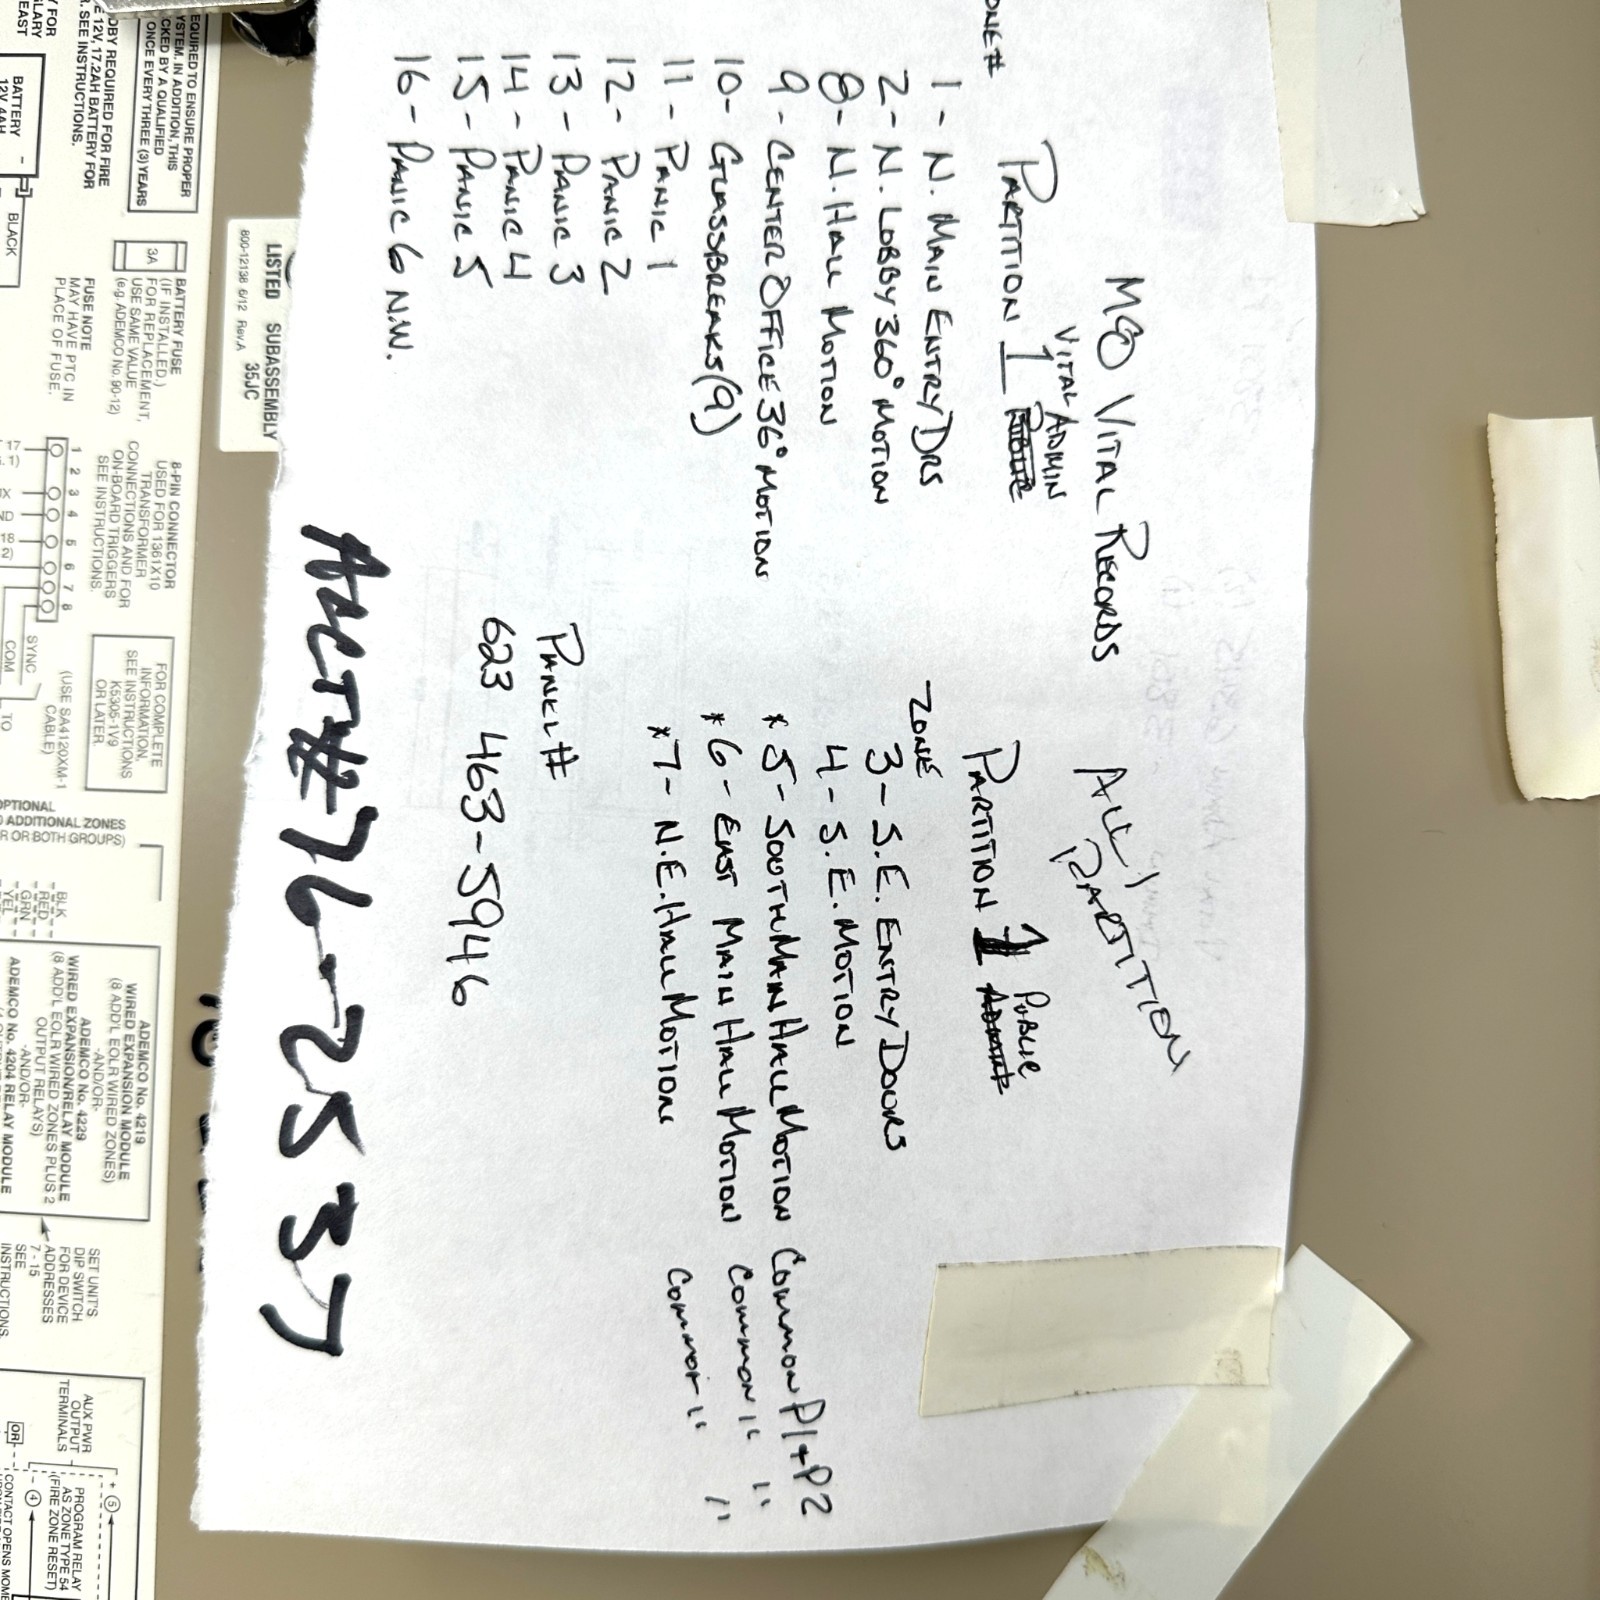 MCO VITAL RECORDS
ALL 1 PARTITION
VITAL ADMIN
PARTITION 1
PARTITION 1 PUBLIC
ZONE
1 - N. MAIN ENTRY DRS
2 - N. LOBBY 360° MOTION
8 - N. HALL MOTION
9 - CENTER OFFICE 36° MOTION
10 - GLASSBREAKS (9)
11 - PANIC 1
12 - PANIC 2
13 - PANIC 3
14 - PANIC 4
15 - PANIC 5
16 - PANIC 6 N.W.
3 - S.E. ENTRY DOORS
4 - S.E. MOTION
* 5 - SOUTH MAIN HALL MOTION COMMON P1+P2
* 6 - EAST MAIN HALL MOTION COMMON " "
* 7 - N.E. HALL MOTION COMMON " "
PANEL#
623 463-5946
ACCT# 76-2537
LISTED SUBASSEMBLY
800-12138 6/12 Rev.A 35JC
EQUIRED TO ENSURE PROPER
YSTEM. IN ADDITION, THIS
CKED BY A QUALIFIED
ONCE EVERY THREE (3) YEARS
DBY REQUIRED FOR FIRE
E 12V, 17.2AH BATTERY FOR
. SEE INSTRUCTIONS.
BATTERY
12V 4AH
BLACK
3A
BATTERY FUSE
(IF INSTALLED.)
FOR REPLACEMENT,
USE SAME VALUE
(e.g. ADEMCO No. 90-12)
FUSE NOTE
MAY HAVE PTC IN
PLACE OF FUSE.
8-PIN CONNECTOR
USED FOR 1361X10
TRANSFORMER
CONNECTIONS AND FOR
ON-BOARD TRIGGERS
SEE INSTRUCTIONS.
1 2 3 4 5 6 7 8
SYNC
COM
TO
FOR COMPLETE
INFORMATION,
SEE INSTRUCTIONS
K5305-1V9
OR LATER.
(USE SA4120XM-1
CABLE)
OPTIONAL
ADDITIONAL ZONES
R OR BOTH GROUPS)
BLK
RED
GRN
YEL
ADEMCO No. 4219
WIRED EXPANSION MODULE
(8 ADD'L EOLR WIRED ZONES)
-AND/OR-
ADEMCO No. 4229
WIRED EXPANSION/RELAY MODULE
(8 ADD'L EOLR WIRED ZONES PLUS 2
OUTPUT RELAYS)
-AND/OR-
ADEMCO No. 4204 RELAY MODULE
SET UNIT'S
DIP SWITCH
FOR DEVICE
ADDRESSES
7 - 15
SEE
INSTRUCTIONS.
AUX PWR
OUTPUT
TERMINALS
+ 5
- 4
OR
PROGRAM RELAY
AS ZONE TYPE 54
(FIRE ZONE RESET)